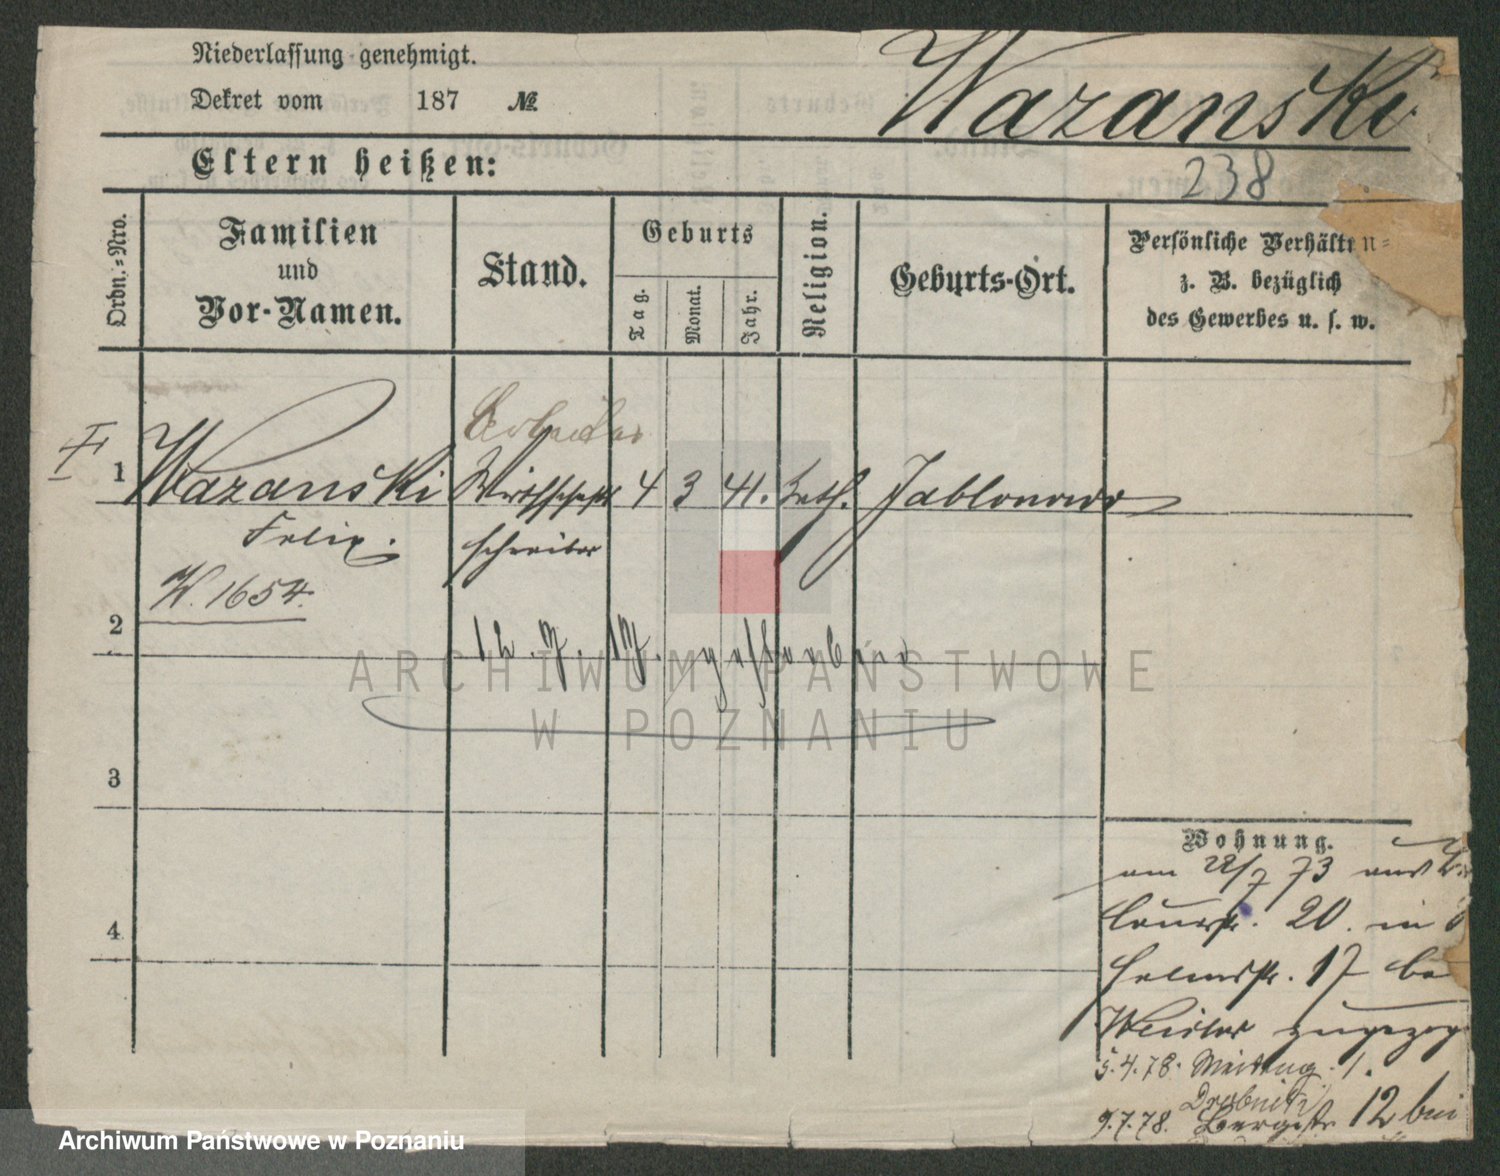 Niederlassung genehmigt.
Dekret vom 187 №
Wazanski
238
Eltern heißen:
Ordn.-Nro.
Familien
und
Vor-Namen.
Stand.
Geburts
Tag.
Monat.
Jahr.
Religion.
Geburts-Ort.
Persönliche Verhältn-
z. B. bezüglich
des Gewerbes u. s. w.
Arbeiter
1 Wazanski Wirthschafts 4 3 41. kath. Jablonowo
Felix. schreiber
W. 1654.
2
12. 7. 17. gestorben
3
4
Wohnung.
am 21/7 73 aus
20. in
17 be
Weidler zugezog
5.4.78. 1.
9.7.78. Bergstr 12 bei
ARCHIWUM PAŃSTWOWE
W POZNANIU
Archiwum Państwowe w Poznaniu